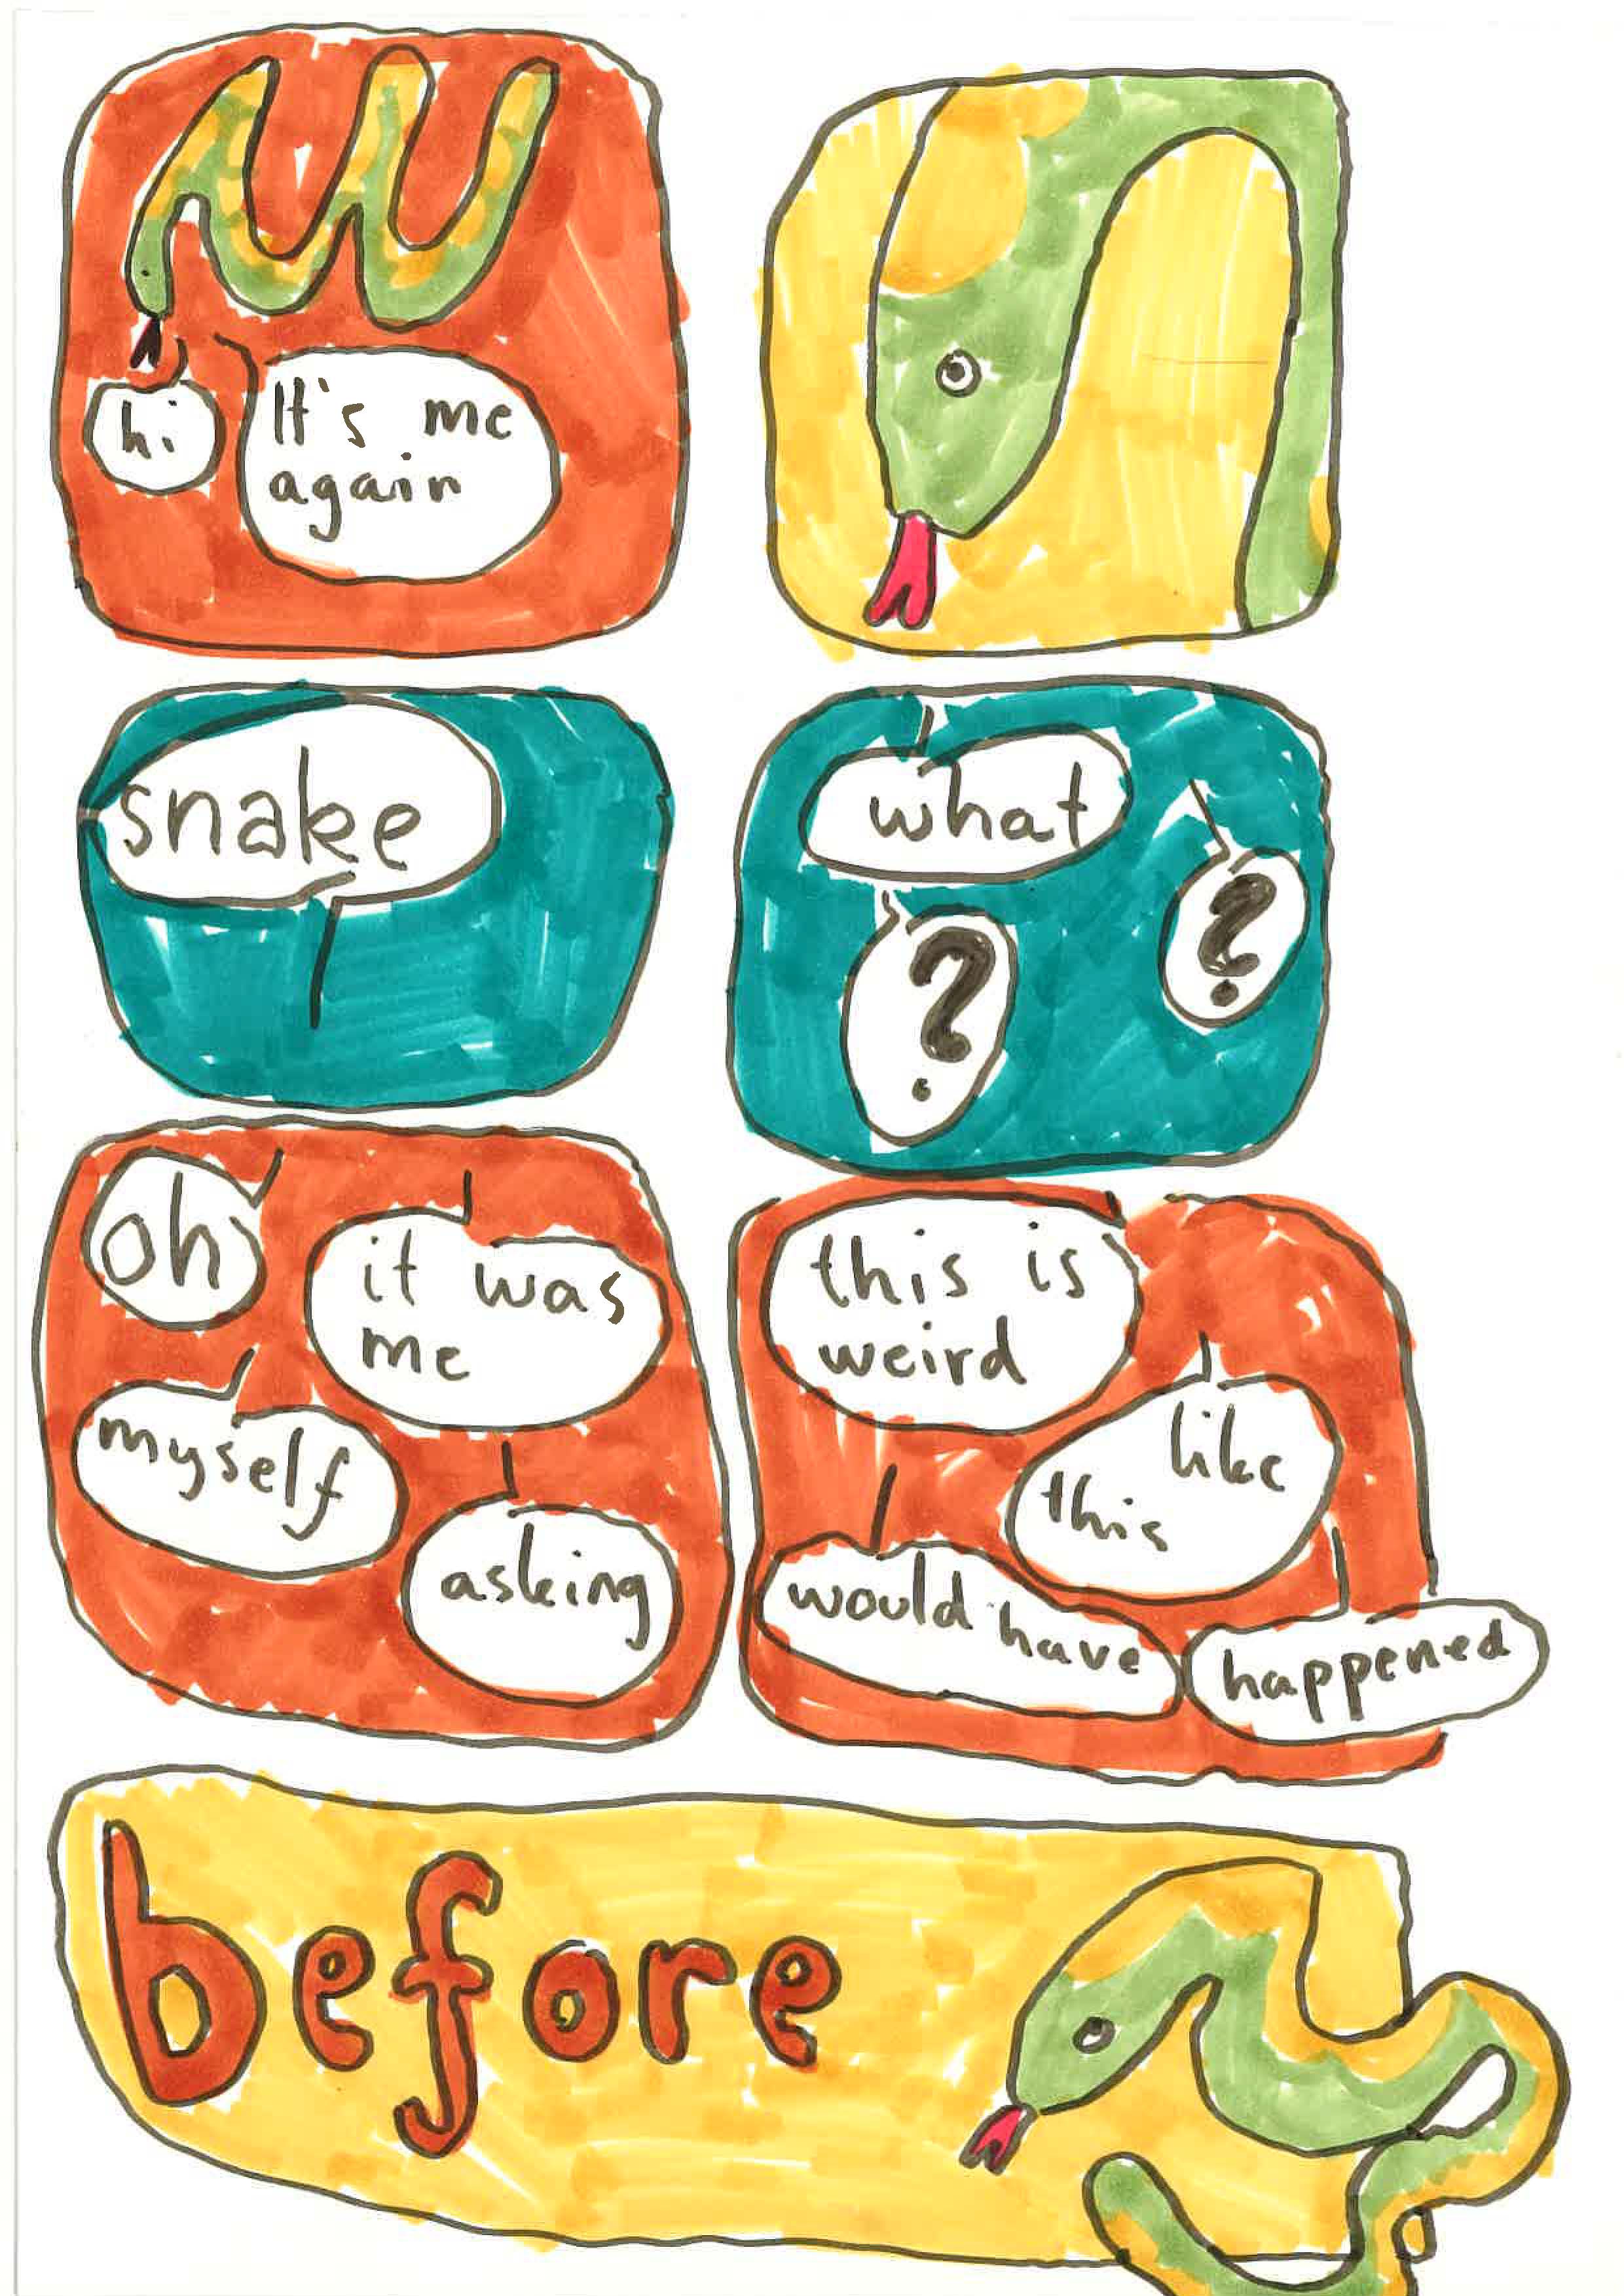 hi
It's me
again
snake
what
?
?
oh
it was
me
myself
asking
this is
weird
like
this
would have
happened
before